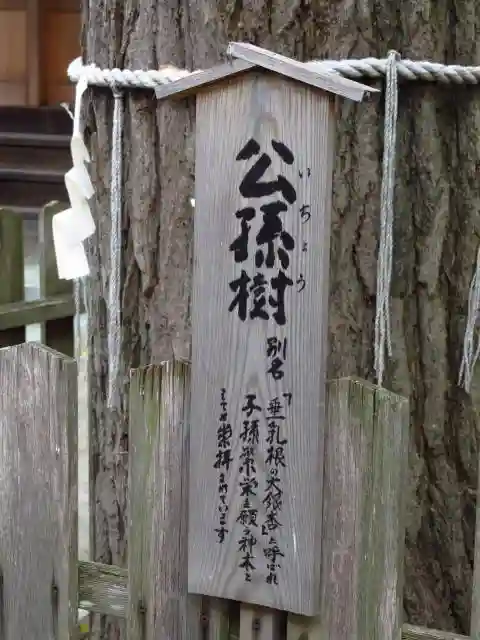 公孫樹
いちょう
別名
「垂乳根の大銀杏」と呼ばれ
子孫繁栄を願う神木と
して崇拝されています